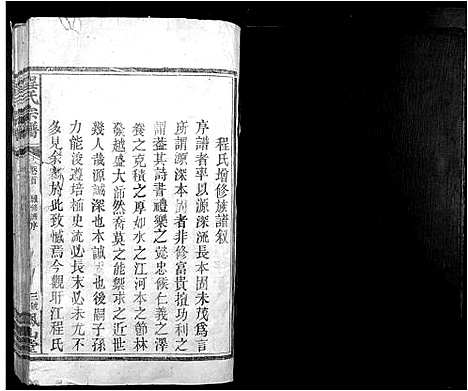 程氏增修族譜叙
序譜者率以源深流長本固末茂爲言
所謂源深本固者非修富貴擅功利之
謂葢其詩書禮樂之懿忠候仁義之澤
養之克積之厚如水之江河本之節林
發越盛大沛然喬莫之能禦求之近世
幾人哉源誠深也本誠固也後嗣子孫
力能浚遵培植史流長末必未尤不
多見余於此致憾焉今觀珩江程氏
程氏宗譜
卷首
三號
鳳山堂